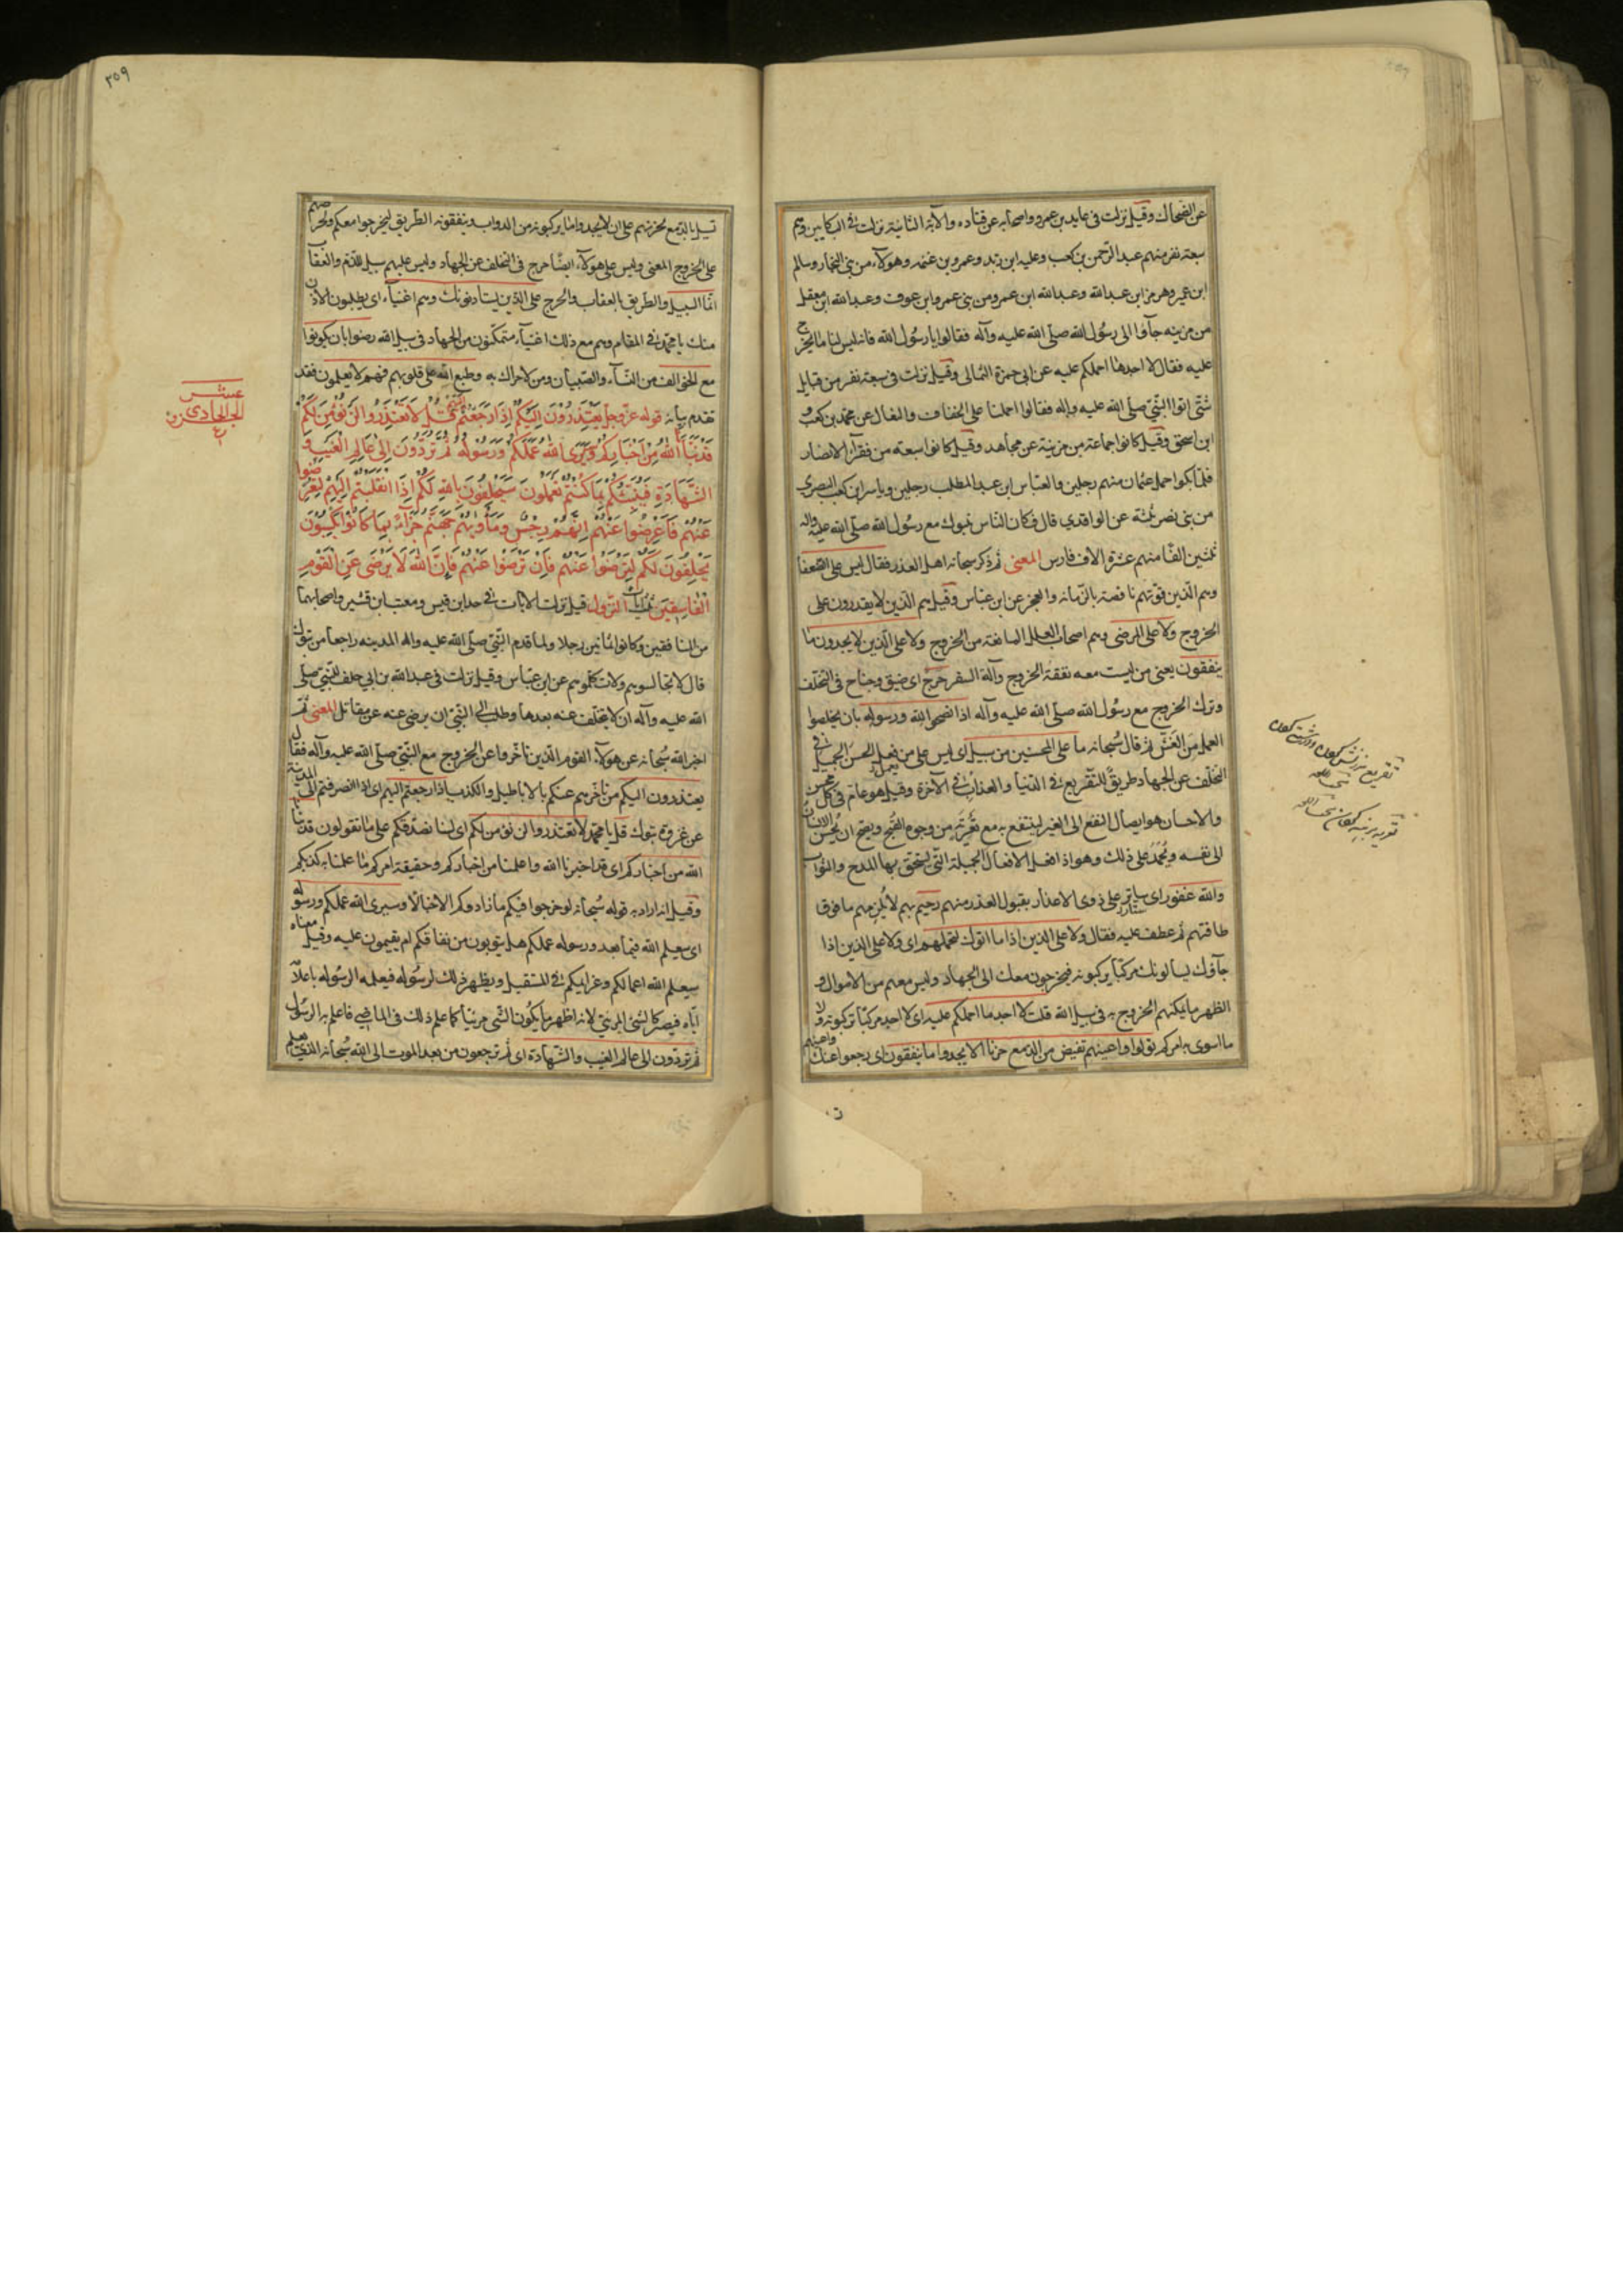 عن الضحاك وقيل نزلت فى عايد بن عمرو واصحابه عن قتاده والآية الثانية نزلت فى البكايين وهم
سبعة نفر منهم عبد الرحمن بن كعب وعلبه ابن زيد وعمرو بن غنمه وهولاء من بنى النجار وسالم
ابن عمير وهرمز ابن عبد الله وعبد الله ابن عمرو من بنى عمرو ابن عوف وعبد الله ابن معقل
من مزينه جآؤا الى رسول الله صلى الله عليه وآله فقالوا يا رسول الله فانه ليس لنا ما نخرج
عليه فقال لا اجد ما احملكم عليه عن ابى حمزة الثمالى وقيل نزلت فى سبعة نفر من قبايل
شتى اتوا النبى صلى الله عليه وآله فقالوا احملنا على الخفاف والنعال عن محمد بن كعب و
ابن اسحق وقيل كانوا جماعة من مزينة عن مجاهد وقيل كانوا سبعة من فقرآء الانصار
فلما بكوا حمل عثمان منهم رجلين والعباس ابن عبد المطلب رجلين وياسر ابن كعب النصرى
من بنى نصر ثلثة عن الواقدى قال فكان الناس بتبوك مع رسول الله صلى الله عليه وآله
ثلثين الفا منهم عشرة الاف فارس المعنى ثم ذكر سبحانه اهل العذر فقال ليس على الضعفا
وهم الذين قوتهم ناقصة بالزمانه والعجز عن ابن عباس وقيل هم الذين لا يقدرون على
الخروج ولا على المرضى وهم اصحاب العلل المانعة من الخروج ولا على الذين لا يجدون ما
ينفقون يعنى من ليست معه نفقة الخروج وآلة السفر حرج اى ضيق وجناح فى التخلف
وترك الخروج مع رسول الله صلى الله عليه وآله اذا نصحوا لله ورسوله بان يخلصوا
العمل من الغش ثم قال سبحانه ما على المحسنين من سبيل اى ليس على من فعل الحسن الجميل فى
التخلف عن الجهاد طريق للتقريع فى الدنيا والعذاب فى الآخرة وقيل هو عام فى كل محسن
والاحسان هو ايصال النفع الى الغير لينتفع به مع تعريته من وجوه القبح ويصح ان يحسن الانسان
الى نفسه ويحمد على ذلك وهو اذا فعل الافعال الجميلة التى يستحق بها المدح والثواب
والله غفور اى ساتر على ذوى الاعذار بقبول العذر منهم رحيم بهم لا يلزمهم ما فوق
طاقتهم ثم عطف عليه فقال ولا على الذين اذا ما اتوك لتحملهم اى ولا على الذين اذا
جآؤك يسالونك مركبا يركبونه فيخرجون معك الى الجهاد وليس معهم من الاموال و
الظهر ما يمكنهم الخروج به فى سبيل الله قلت لا اجد ما احملكم عليه اى لا اجد مركبا تركبونه ولا
ما اسوى به امركم تولوا واعينهم تفيض من الدمع حزنا الا يجدوا ما ينفقون اى رجعوا عنك واعينهم
٣٥٩
تسيل بالدمع لحزنهم على ان لا يجدوا ما يركبونه من الدواب وينفقونه الطريق ليخرجوا معكم ولحرصهم
على الخروج المعنى وليس على هولاء ايضا حرج فى التخلف عن الجهاد وليس عليهم سبيل للذم والعقاب
انما السبيل والطريق بالعقاب والحرج على الذين يستاذنونك وهم اغنيآء اى يطلبون الاذن
منك يا محمد فى المقام وهم مع ذلك اغنيآء متمكنون من الجهاد فى سبيل الله رضوا بان يكونوا
مع الخوالف من النسآء والصبيان ومن لا حراك به وطبع الله على قلوبهم فهم لا يعلمون فقد
تقدم بيانه قوله عز وجل يَعْتَذِرُونَ اِلَيْكُمْ اِذَا رَجَعْتُمْ اِلَيْهِمْ قُلْ لَا تَعْتَذِرُوا لَنْ نُؤْمِنَ لَكُمْ
قَدْ نَبَّأَنَا اللهُ مِنْ اَخْبَارِكُمْ وَسَيَرَى اللهُ عَمَلَكُمْ وَرَسُولُهُ ثُمَّ تُرَدُّونَ اِلىٰ عَالِمِ الْغَيْبِ وَ
الشَّهَادَةِ فَيُنَبِّئُكُمْ بِمَا كُنْتُمْ تَعْمَلُونَ سَيَحْلِفُونَ بِاللهِ لَكُمْ اِذَا انْقَلَبْتُمْ اِلَيْهِمْ لِتُعْرِضُوا
عَنْهُمْ فَاَعْرِضُوا عَنْهُمْ اِنَّهُمْ رِجْسٌ وَمَأْوٰيهُمْ جَهَنَّمُ جَزَآءً بِمَا كَانُوا يَكْسِبُونَ
يَحْلِفُونَ لَكُمْ لِتَرْضَوْا عَنْهُمْ فَاِنْ تَرْضَوْا عَنْهُمْ فَاِنَّ اللهَ لَا يَرْضَى عَنِ الْقَوْمِ
الْفَاسِقِينَ ثلث آيات النزول قيل نزلت الايات فى جد ابن قيس ومعتب ابن قشير واصحابهما
من المنافقين وكانوا ثمانين رجلا ولما قدم النبى صلى الله عليه وآله المدينه راجعا من تبوك
قال لا تجالسوهم ولا تكلموهم عن ابن عباس وقيل نزلت فى عبد الله بن ابى حلف للنبى صلى
الله عليه وآله ان لا يتخلف عنه بعدها وطلب الى النبى ان يرضى عنه عن مقاتل المعنى ثم
اخبر الله سبحانه عن هولآء القوم الذين تاخروا عن الخروج مع النبى صلى الله عليه وآله فقال
يعتذرون اليكم من تاخرهم عنكم بالاباطيل والكذب اذا رجعتم اليهم اى اذا انصرفتم الى المدينة
عن غزوة تبوك قل يا محمد لا تعتذروا لن نؤمن لكم اى لسنا نصدقكم على ما تقولون قد نبانا
الله من اخباركم اى قد اخبرنا الله واعلمنا من اخباركم وحقيقة امركم ما علمنا به كذبكم
وقيل انه اراد به قوله سبحانه لو خرجوا فيكم ما زادوكم الا خبالا وسيرى الله عملكم ورسوله
اى سيعلم الله فيما بعد ورسوله عملكم هل يتوبون من نفاقكم ام يقيمون عليه وقيل معناه
سيعلم الله اعمالكم وعزايمكم فى المستقبل ويظهر ذلك لرسوله فيعلمه الرسول باعلا
اياه فيصير كالشئ المرئى لانه اظهر ما يكون الشى مرئيا كما علم ذلك فى الماضى فاعلم به الرسول
ثم تردون الى عالم الغيب والشهادة اى ثم ترجعون من بعد الموت الى الله سبحانه الذى يعلم
عشر
الجز الحادى